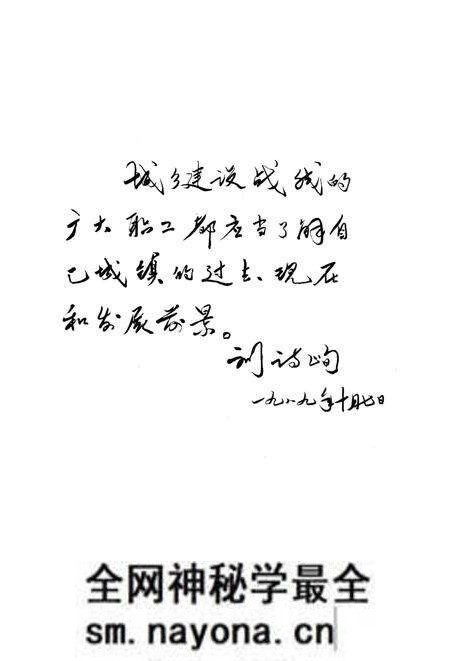 城乡建设战线的
广大职工都应当了解自
己城镇的过去、现在
和发展前景。
刘诗峋
一九八九年十月七日
全网神秘学最全
sm.nayona.cn